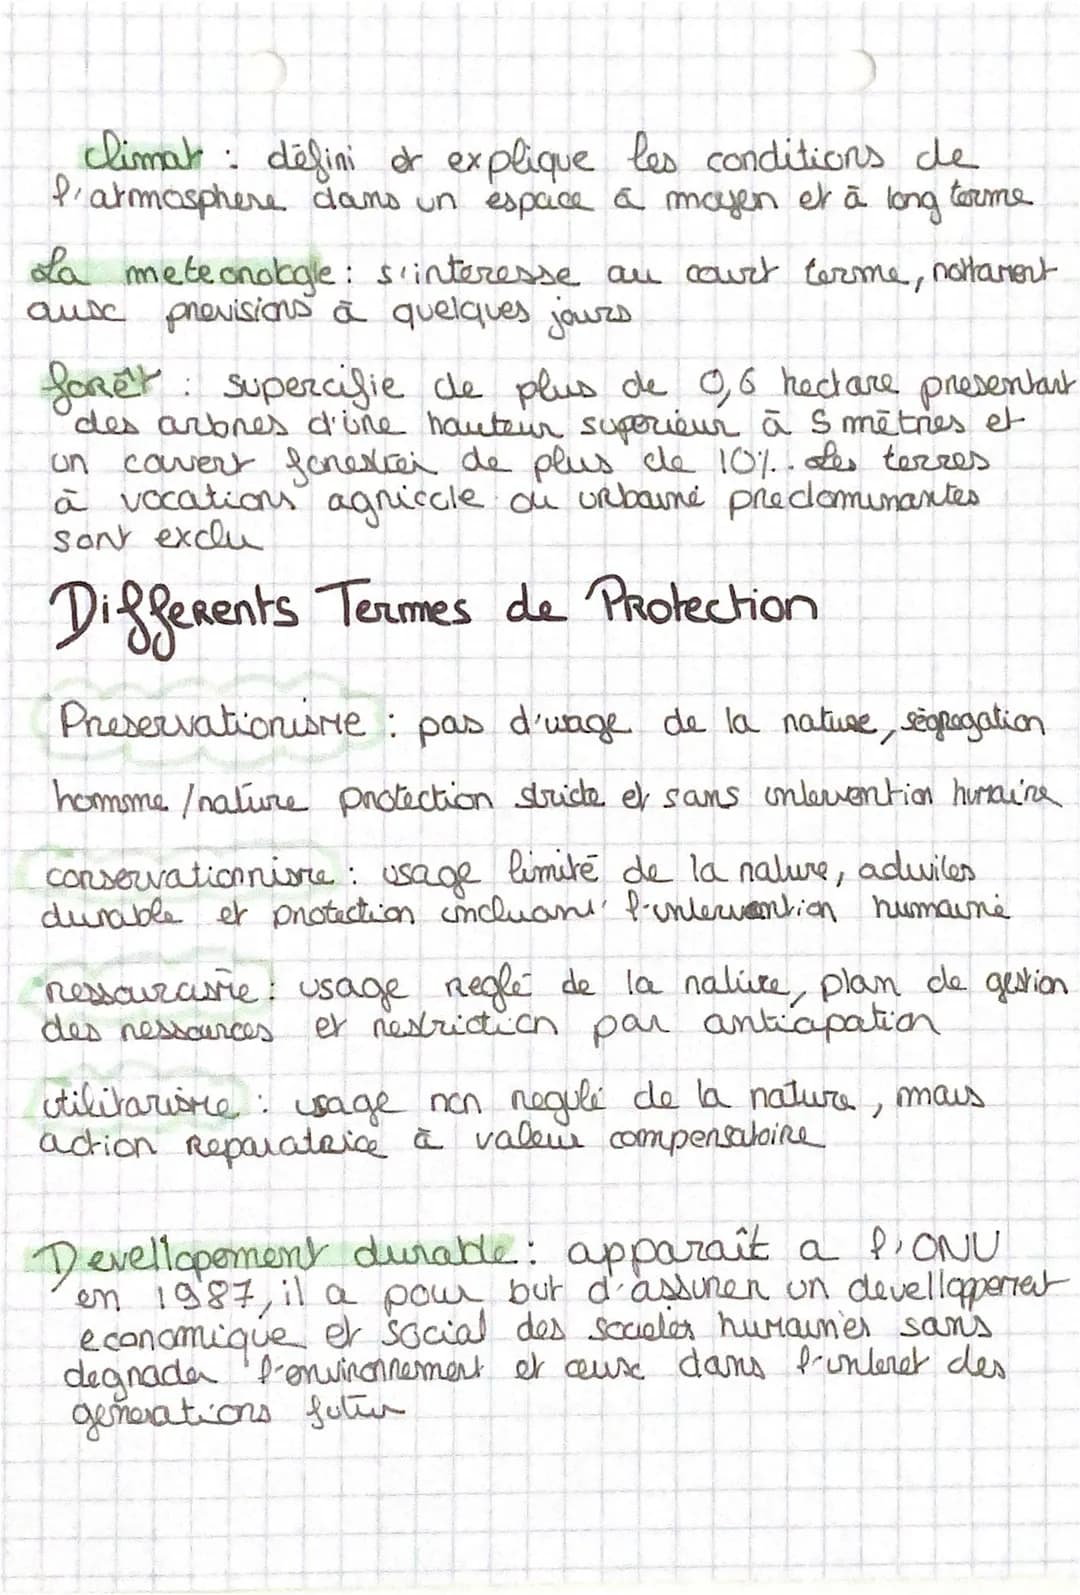 climat : défini et explique les conditions de
l'atmosphere dans un espace à moyen et à long terme
La meteorologie : s'interesse au court terme, nottament
aux previsions à quelques jours
forêt : supercifie de plus de 0,6 hectare presentant
des arbres d'une hauteur superieur à 5 mètres et
un couvert forestier de plus de 10%. Les terres
à vocations agricole ou urbaine predominantes
sont exclu
Differents Termes de Protection
Preservationisme : pas d'usage de la nature, ségregation
homme / nature protection stricte et sans intervention humaine
conservationnisme : usage limité de la nature, activités
durable et protection incluant l'intervention humaine
ressourcisme : usage reglé de la nature, plan de gestion
des ressources et restriction par anticipation
utilitarisme : usage non regulé de la nature, mais
action reparatrice à valeur compensatoire
Devellopement durable : apparaît a l'ONU
en 1987, il a pour but d'assurer un devellopement
economique et social des societés humaines sans
degrader l'environnement et ceux dans l'interet des
generations futur